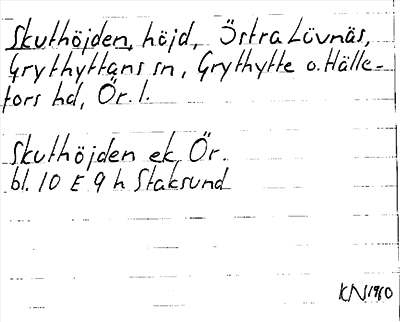 Skuthöjden, höjd, Östra Lövnäs,
Grythyttans sn, Grythytte o. Hälle-
fors hd, Ör. l.
Skuthöjden ek, Ör.
bl. 10 E 9 h Staksund
KN 1960